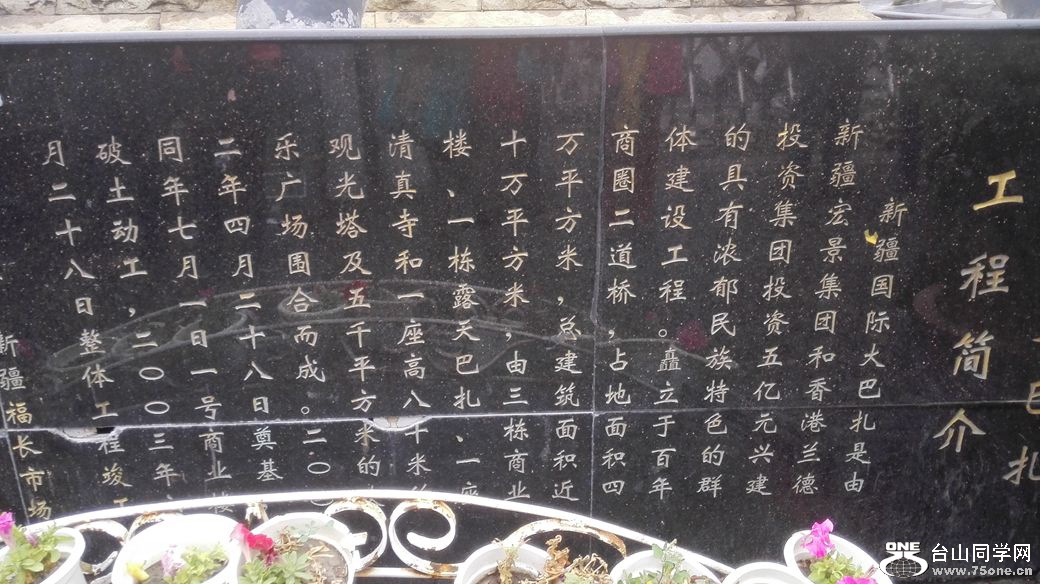 巴扎
工程简介
新疆国际大巴扎是由
新疆宏景集团和香港兰德
投资集团投资五亿元兴建
的具有浓郁民族特色的群
体建设工程。矗立于百年
商圈二道桥，占地面积四
万平方米，总建筑面积近
十万平方米，由三栋商业
楼、一栋露天巴扎、一座
清真寺和一座高八十米
观光塔及五千平方米的
乐广场围合而成。二〇
二年四月二十八日奠基
同年七月一日一号商业楼
破土动工，二〇〇三年
月二十八日整体工程竣工
新疆福长市场
ONE
台山同学网
www.75one.cn